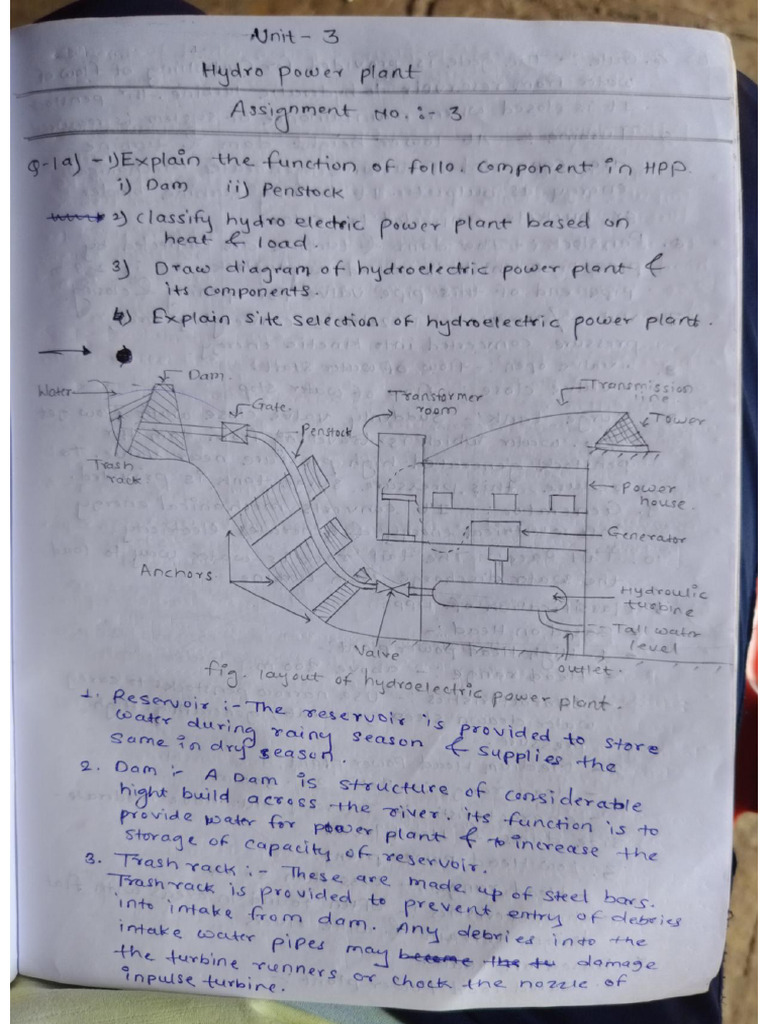 Unit - 3
Hydro power plant
Assignment No. :- 3
Q-1a) - 1) Explain the function of follo. component in HPP.
i) Dam ii) Penstock
2) classify hydro electric power plant based on
heat & load.
3) Draw diagram of hydroelectric power plant &
its components.
4) Explain site selection of hydroelectric power plant.
Dam.
Water
Gate.
Penstock
Trash
rack
Anchors
Valve
Transformer
room
Transmission
line
Tower
power
house.
Generator
Hydraulic
turbine
Tail water
level
outlet.
fig. layout of hydroelectric power plant.
1. Reservoir :- The reservoir is provided to store
water during rainy season & supplies the
same in dry season.
2. Dam :- A Dam is structure of considerable
hight build across the river. its function is to
provide water for power plant & to increase the
storage of capacity of reservoir.
3. Trash rack :- These are made up of steel bars.
Trash-rack is provided to prevent entry of debries
into intake from dam. Any debries into the
intake water pipes may become the tu damage
the turbine runners or chock the nozzle of
inpulse turbine.